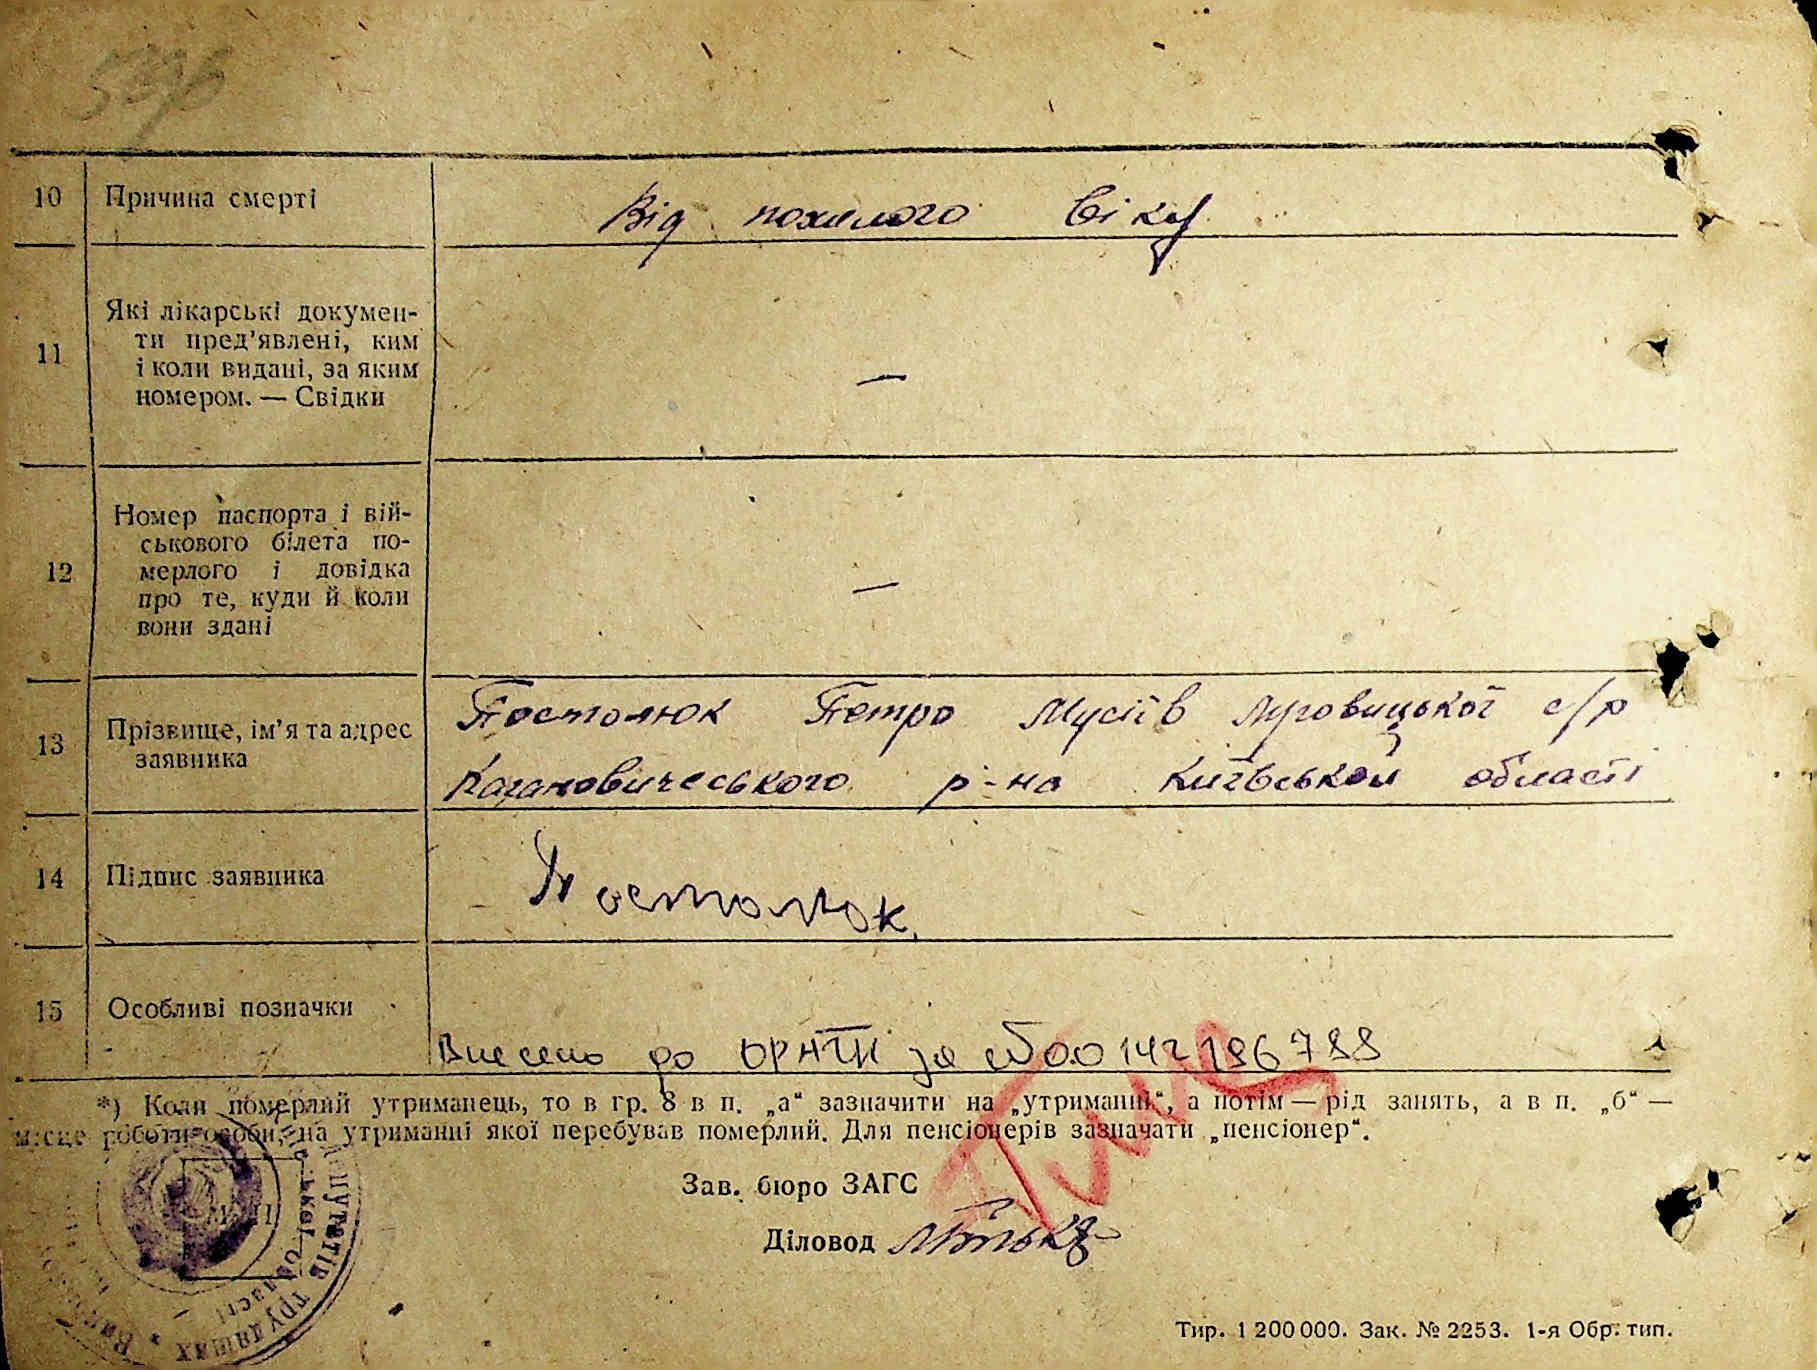 10 Причина смерті Від похилого віку
11 Які лікарські докумен-
ти пред'явлені, ким
і коли видані, за яким
номером. — Свідки —
12 Номер паспорта і вій-
ськового білета по-
мерлого і довідка
про те, куди й коли
вони здані —
13 Прізвище, ім'я та адрес
заявника
Постолюк Петро Мусіїв Луговицької с/р
Кагановичеського р-на Київськой області
14 Підпис заявника Постолюк
15 Особливі позначки
Внесено до за 00142196788
*) Коли померлий утриманець, то в гр. 8 в п. „а“ зазначити на „утриманні“, а потім — рід занять, а в п. „б“ —
місце роботи особи, на утриманні якої перебував померлий. Для пенсіонерів зазначати „пенсіонер“.
Зав. бюро ЗАГС
Діловод
депутатів трудящих
ської області
Тир. 1 200 000. Зак. № 2253. 1-я Обр. тип.